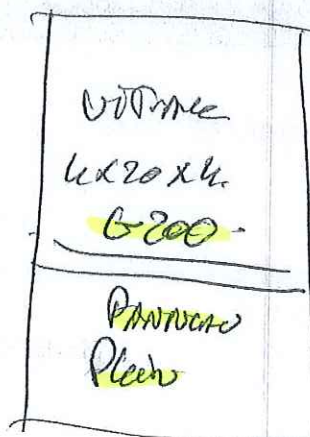 Vitrage
4x20x4.
G200
PANNEAU
Plein